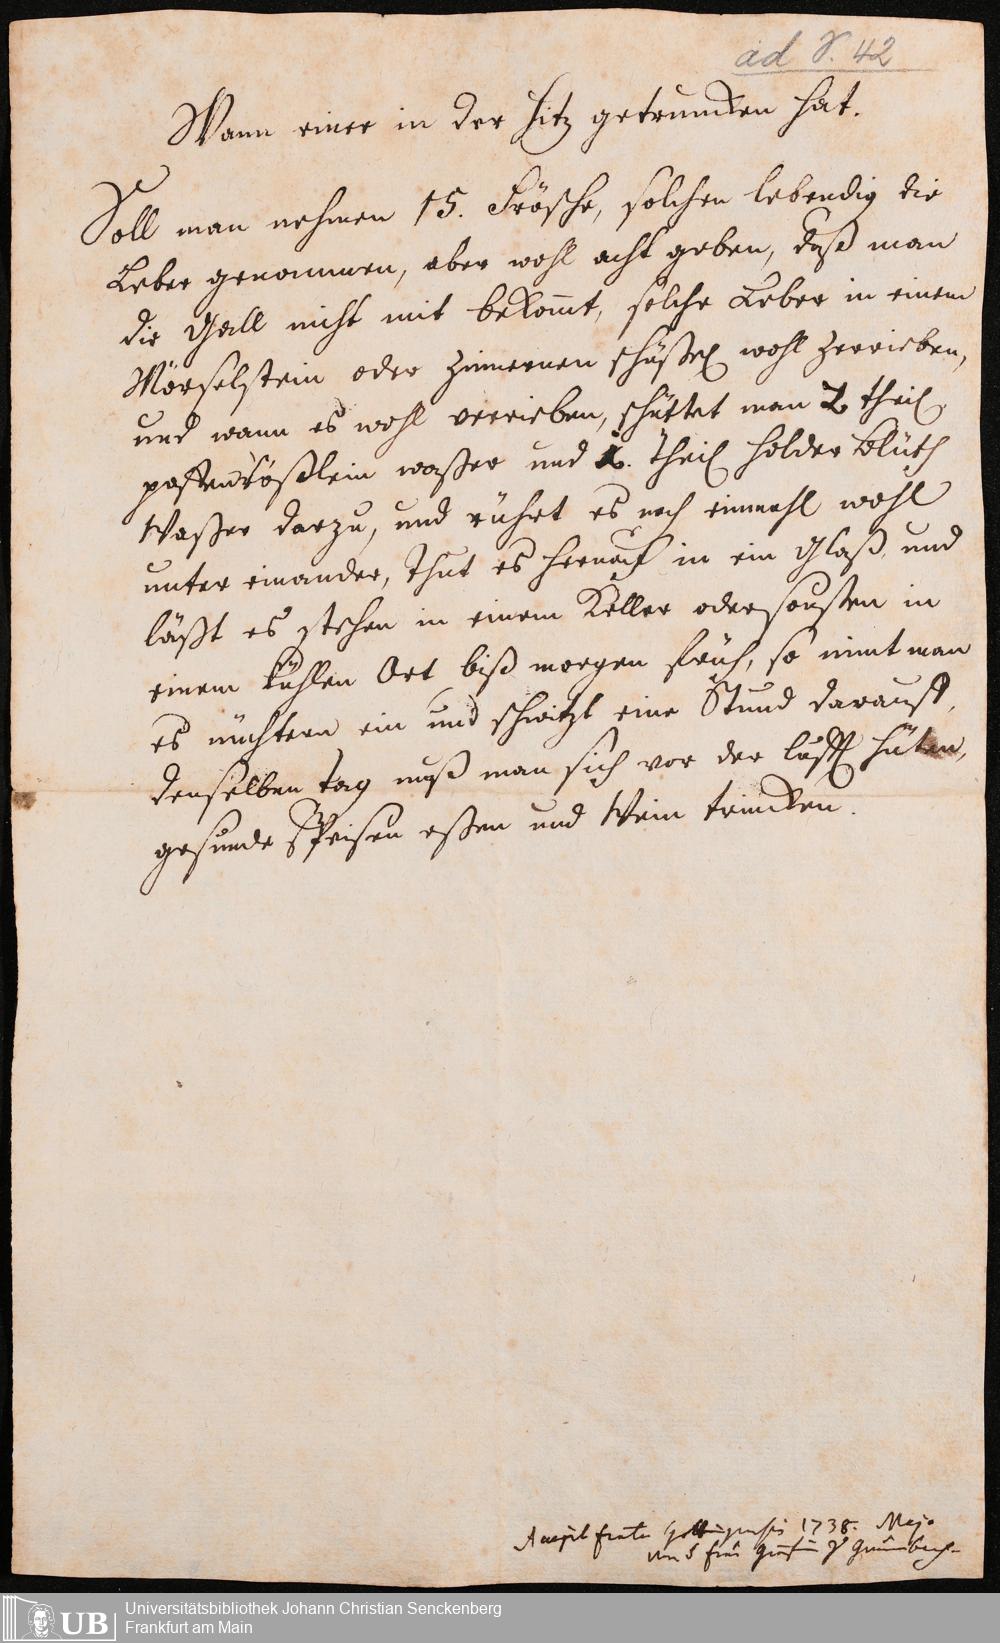 ad V. 42
Wann einer in der Hitz getruncken hat.
Soll man nehmen 15. Frösche, solchen lebendig die
Leber genommen, aber wohl acht geben, daß man
die Gall nicht mit bekomt, solche Leber in einem
Mörselstein oder zinnernen schüßel wohl zerrieben,
und wann es wohl verrieben, schüttet man 2 theil
waßer und 1. Theil holder blüth
Waßer darzu, und rührt es noch einmahl wohl
unter einander, Thut es hernach in ein Glaß und
läßt es stehen in einem Keller oder sonsten in
einem kühlen Ort biß morgen früh, so nimt man
es nüchtern ein und schwitzt eine Stund darauff,
denselben tag muß man sich vor der lufft hüten,
gesunde Speisen eßen und Wein trincken.
1738. Majo
von
Universitätsbibliothek Johann Christian Senckenberg
UB Frankfurt am Main